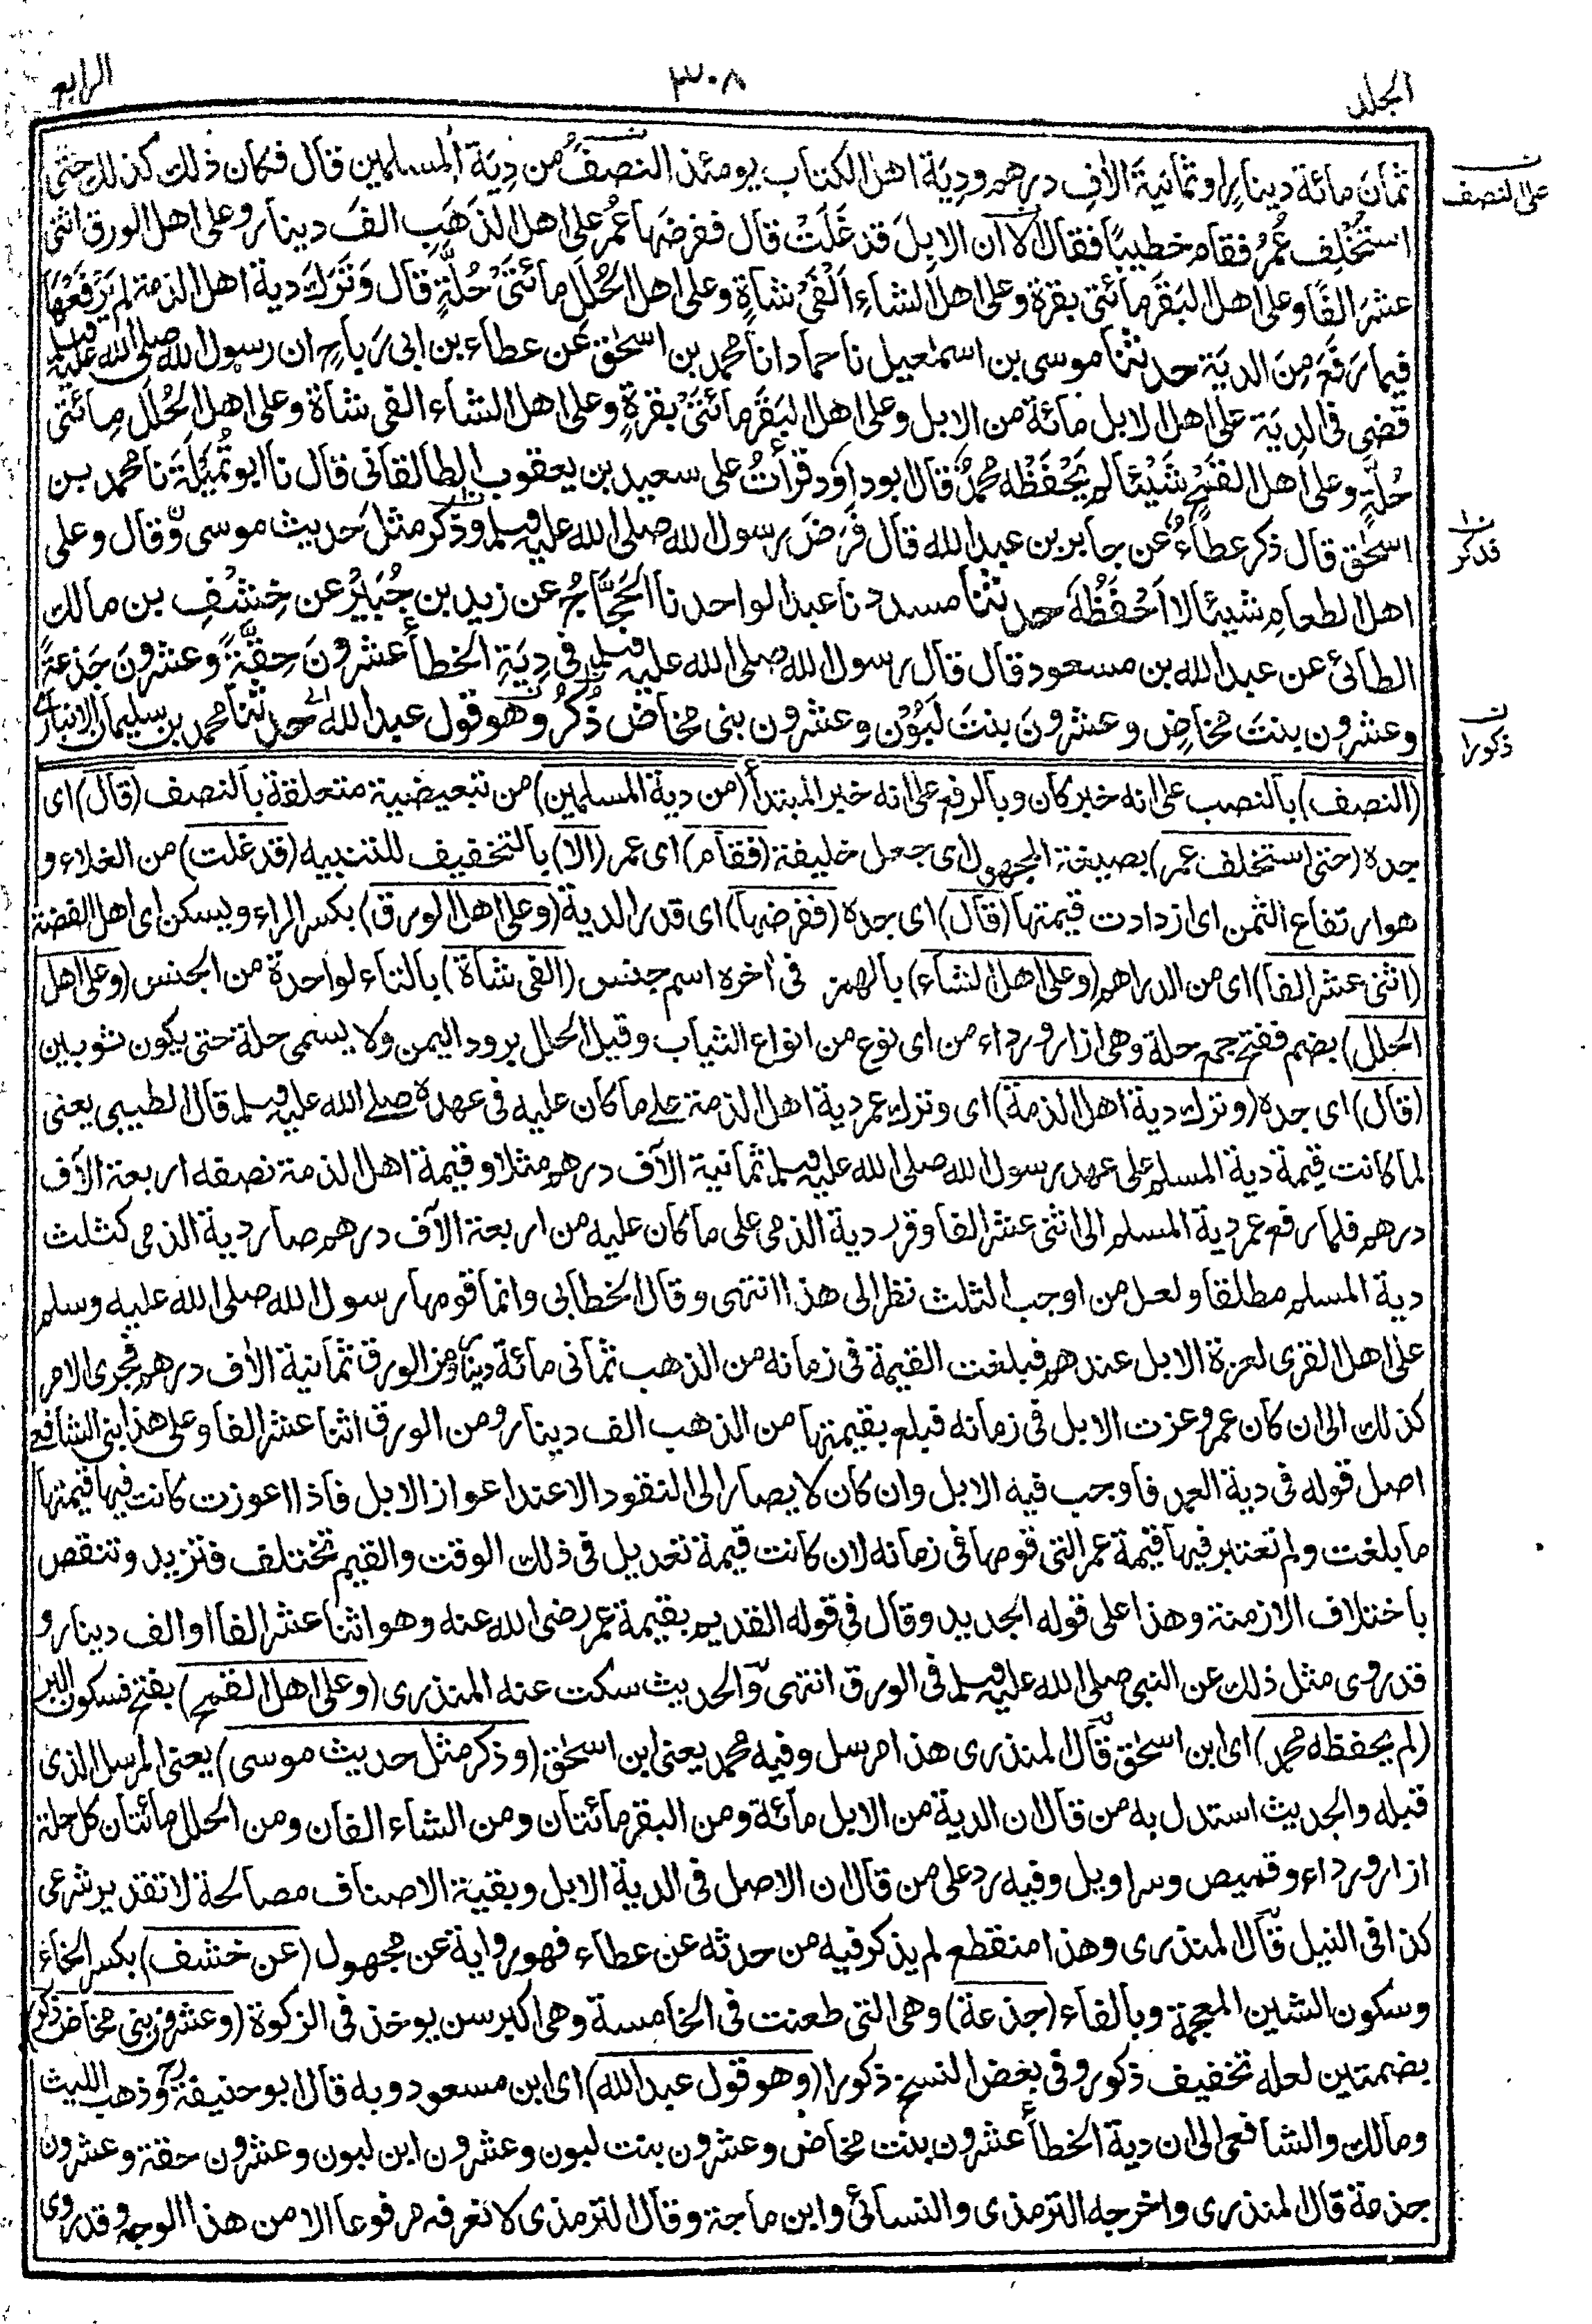 الجلد
٣٠٨
الرابع
ثمان مائة دينار او ثمانية الاف درهم ودية اهل الكتاب يومئذ النصف من دية المسلمين قال فكان ذلك كذلك حتى
على النصف
استخلف عمر فقام خطيبا فقال الا ان الابل قد غلت قال ففرضها عمر على اهل الذهب الف دينار وعلى اهل الورق اثنى
عشر الفا وعلى اهل البقر مائتى بقرة وعلى اهل الشاء الفى شاة وعلى اهل الحلل مائتى حلة قال وترك دية اهل الذمة لم يرفعها
فيما رفع من الدية حدثنا موسى بن اسمعيل نا حماد انا محمد بن اسحق عن عطاء بن ابى رباح ان رسول الله صلى الله عليه وسلم
قضى فى الدية على اهل الابل مائة من الابل وعلى اهل البقر مائتى بقرة وعلى اهل الشاء الفى شاة وعلى اهل الحلل مائتى
حلة وعلى اهل القمح شيئا لم يحفظه محمد قال ابو داود قرأت على سعيد بن يعقوب الطالقانى قال نا ابو تميلة نا محمد بن
اسحق قال ذكر عطاء عن جابر بن عبد الله قال فرض رسول الله صلى الله عليه وسلم وذكر مثل حديث موسى وقال وعلى
فذكر
اهل الطعام شيئا لا احفظه حدثنا مسدد نا عبد الواحد نا الحجاج عن زيد بن جبير عن خشف بن مالك
الطائى عن عبد الله بن مسعود قال قال رسول الله صلى الله عليه وسلم فى دية الخطأ عشرون حقة وعشرون جذعة
وعشرون بنت مخاض وعشرون بنت لبون وعشرون بنى مخاض ذكر وهو قول عبد الله حدثنا محمد بن سليمان الانبارى
ذكورا
(النصف) بالنصب على انه خبر كان وبالرفع على انه خبر المبتدأ (من دية المسلمين) من تبعيضية متعلقة بالنصف (قال) اى
جده (حتى استخلف عمر) بصيغة المجهول اى جعل خليفة (فقام) اى عمر (الا) بالتخفيف للتنبيه (قد غلت) من الغلاء و
هو ارتفاع الثمن اى ازدادت قيمتها (قال) اى جده (ففرضها) اى قدر الدية (وعلى اهل الورق) بكسر الراء ويسكن اى اهل الفضة
(اثنى عشر الفا) اى من الدراهم (وعلى اهل الشاء) بالهمز فى اخره اسم جنس (الفى شاة) بالتاء لواحدة من الجنس (وعلى اهل
الحلل) بضم ففتح جمع حلة وهى ازار ورداء من اى نوع من انواع الثياب وقيل الحلل برود اليمن ولا يسمى حلة حتى يكون ثوبين
(قال) اى جده (وترك دية اهل الذمة) اى وترك عمر دية اهل الذمة على ما كان عليه فى عهده صلے الله عليه وسلم قال الطيبى يعنى
لما كانت قيمة دية المسلم على عهد رسول الله صلى الله عليه وسلم ثمانية الآف درهم مثلا وقيمة اهل الذمة نصفه اربعة الآف
درهم فلما رفع عمر دية المسلم الى اثنى عشر الفا وقرر دية الذمى على ما كان عليه من اربعة الآف درهم صار دية الذمى كثلث
دية المسلم مطلقا ولعل من اوجب الثلث نظر الى هذا انتهى وقال الخطابى وانما قومها رسول الله صلى الله عليه وسلم
على اهل القرى لعزة الابل عندهم فبلغت القيمة فى زمانه من الذهب ثمانى مائة دينار ومن الورق ثمانية الاف درهم فجرى الامر
كذلك الى ان كان عمر وعزت الابل فى زمانه فبلغ بقيمتها من الذهب الف دينار ومن الورق اثنا عشر الفا وعلى هذا بنى الشافعى
اصل قوله فى دية العمد فاوجب فيه الابل وان كان لا يصار الى النقود الا عند اعواز الابل فاذا اعوزت كانت فيها قيمتها
ما بلغت ولم تعتبر فيها قيمة عمر التى قومها فى زمانه لان كانت قيمة تعديل فى ذلك الوقت والقيم تختلف فتزيد وتنقص
باختلاف الازمنة وهذا على قوله الجديد وقال فى قوله القديم بقيمة عمر رضى الله عنه وهو اثنا عشر الفا او الف دينار و
قد روى مثل ذلك عن النبى صلى الله عليه وسلم فى الورق انتهى والحديث سكت عنه المنذرى (وعلى اهل القمح) بفتح فسكون البر
(لم يحفظه محمد) اى ابن اسحق قال المنذرى هذا مرسل وفيه محمد يعنى ابن اسحق (وذكر مثل حديث موسى) يعنى المرسل الذى
قبله والحديث استدل به من قال ان الدية من الابل مائة ومن البقر مائتان ومن الشاء الفان ومن الحلل مائتان كل حلة
ازار ورداء وقميص وسراويل وفيه رد على من قال ان الاصل فى الدية الابل وبقية الاصناف مصالحة لا تقدير شرعى
كذا فى النيل قال المنذرى وهذا منقطع لم يذكر فيه من حدثه عن عطاء فهو رواية عن مجهول (عن خشف) بكسر الخاء
وسكون الشين المعجمة وبالفاء (جذعة) وهى التى طعنت فى الخامسة وهى اكبر سن يوخذ فى الزكوة (وعشرون بنى مخاض ذكر)
بضمتين لعله تخفيف ذكور وفى بعض النسخ ذكورا (وهو قول عبد الله) اى ابن مسعود وبه قال ابو حنيفة وذهب الليث
ومالك والشافعى الى ان دية الخطأ عشرون بنت مخاض وعشرون بنت لبون وعشرون ابن لبون وعشرون حقة وعشرون
جذعة قال المنذرى واخرجه الترمذى والنسائى وابن ماجة وقال الترمذى لا نعرفه مرفوعا الا من هذا الوجه وقد روى